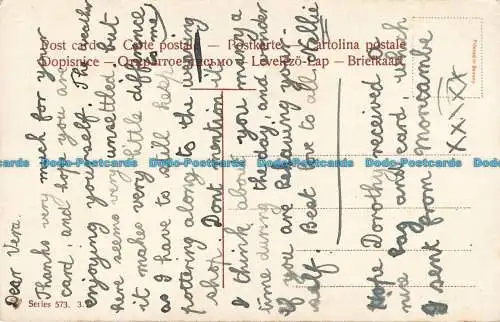 Post card — Carte postale — Postkarte — Cartolina postale
Dopisnice — Открытое письмо — Levelező-Lap — Briefkaart
Printed in Saxony
Dear Vera.
Thanks very much for your
card, and hope you are
enjoying yourself. The weather
here seems very unsettled but
it makes very little difference to me,
as I have to still keep
pottering along to the weaving
shop. Dont mention it
I think about you many a
time during the day, and wonder
if you are behaving your-
self. Best love to all, Nellie
Hope Dorothy received a
nice bag and card which
I sent from morecambe
XXXXX
Series 573. 3.
Dodo-Postcards Dodo-Postcards Dodo-Postcards Dodo-Postcards Dodo-Postcards